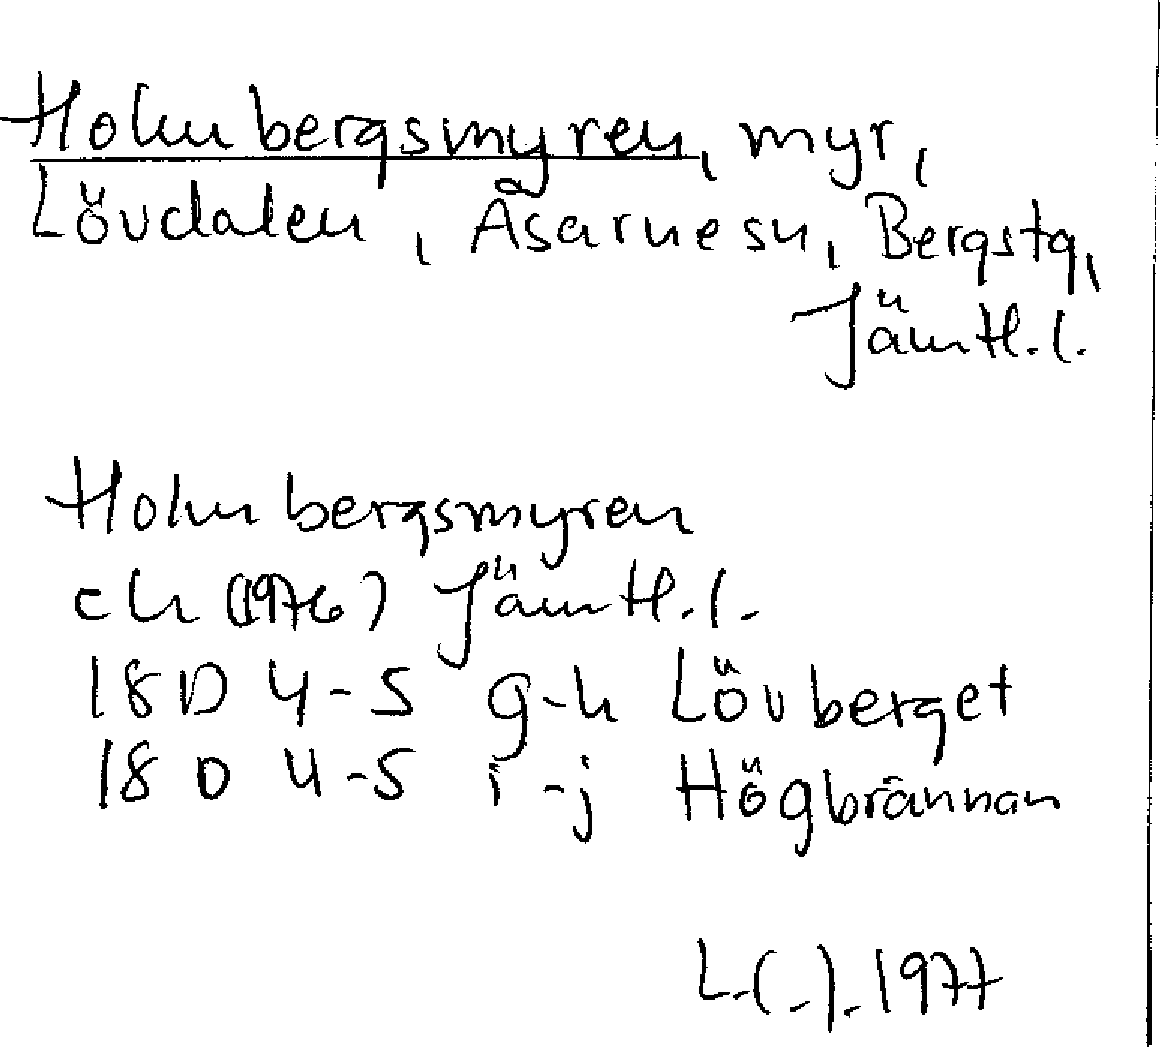 Holmbergsmyren, myr,
Lövdalen, Åsarne sn, Bergs tg,
Jämtl. l.
Holmbergsmyren
ek (1976) Jämtl. l.
18D 4-5 g-h Lövberget
18D 4-5 i-j Högbrännan
1977